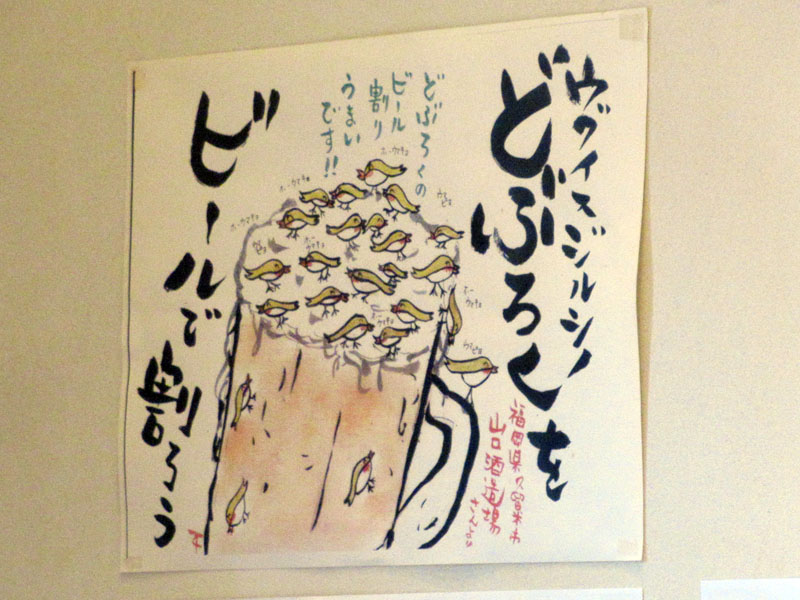 ウグイスジルシノ
どぶろくを
ビールで割ろう
どぶろくの
ビール
割り
うまい
です!!
福岡県久留米市
山口酒造場
さんとの